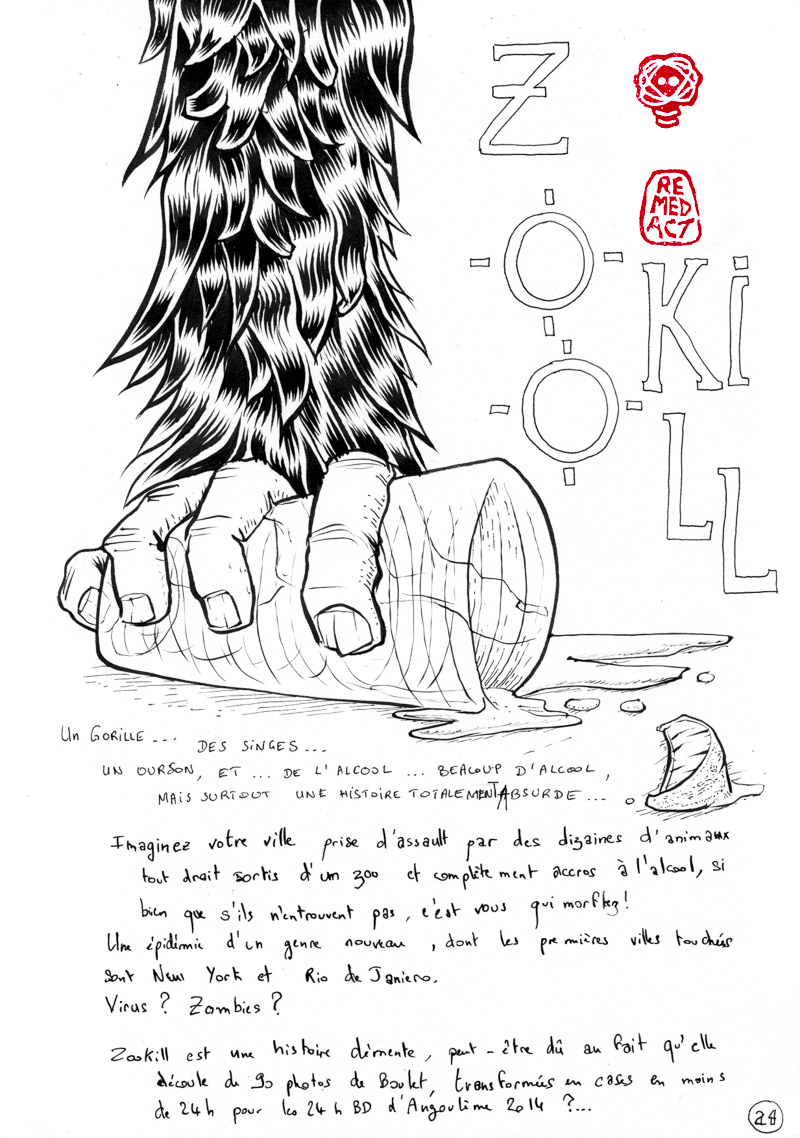 ZOOKiLL
RE
MED
ACT
UN GORILLE... DES SINGES...
UN OURSON, ET ... DE L'ALCOOL ... BEACOUP D'ALCOOL,
MAIS SURTOUT UNE HISTOIRE TOTALEMENT ABSURDE...
Imaginez votre ville prise d'assaut par des dizaines d'animaux
tout droit sortis d'un zoo et complètement accros à l'alcool, si
bien que s'ils n'entrouvent pas, c'est vous qui morflez!
Une épidémie d'un genre nouveau, dont les premières villes touchées
sont New York et Rio de Janiero.
Virus ? Zombies ?
Zookill est une histoire démente, peut-être dû au fait qu'elle
découle de 90 photos de Boulet, transformées en cases en moins
de 24h pour les 24h BD d'Angoulême 2014 ?...
24